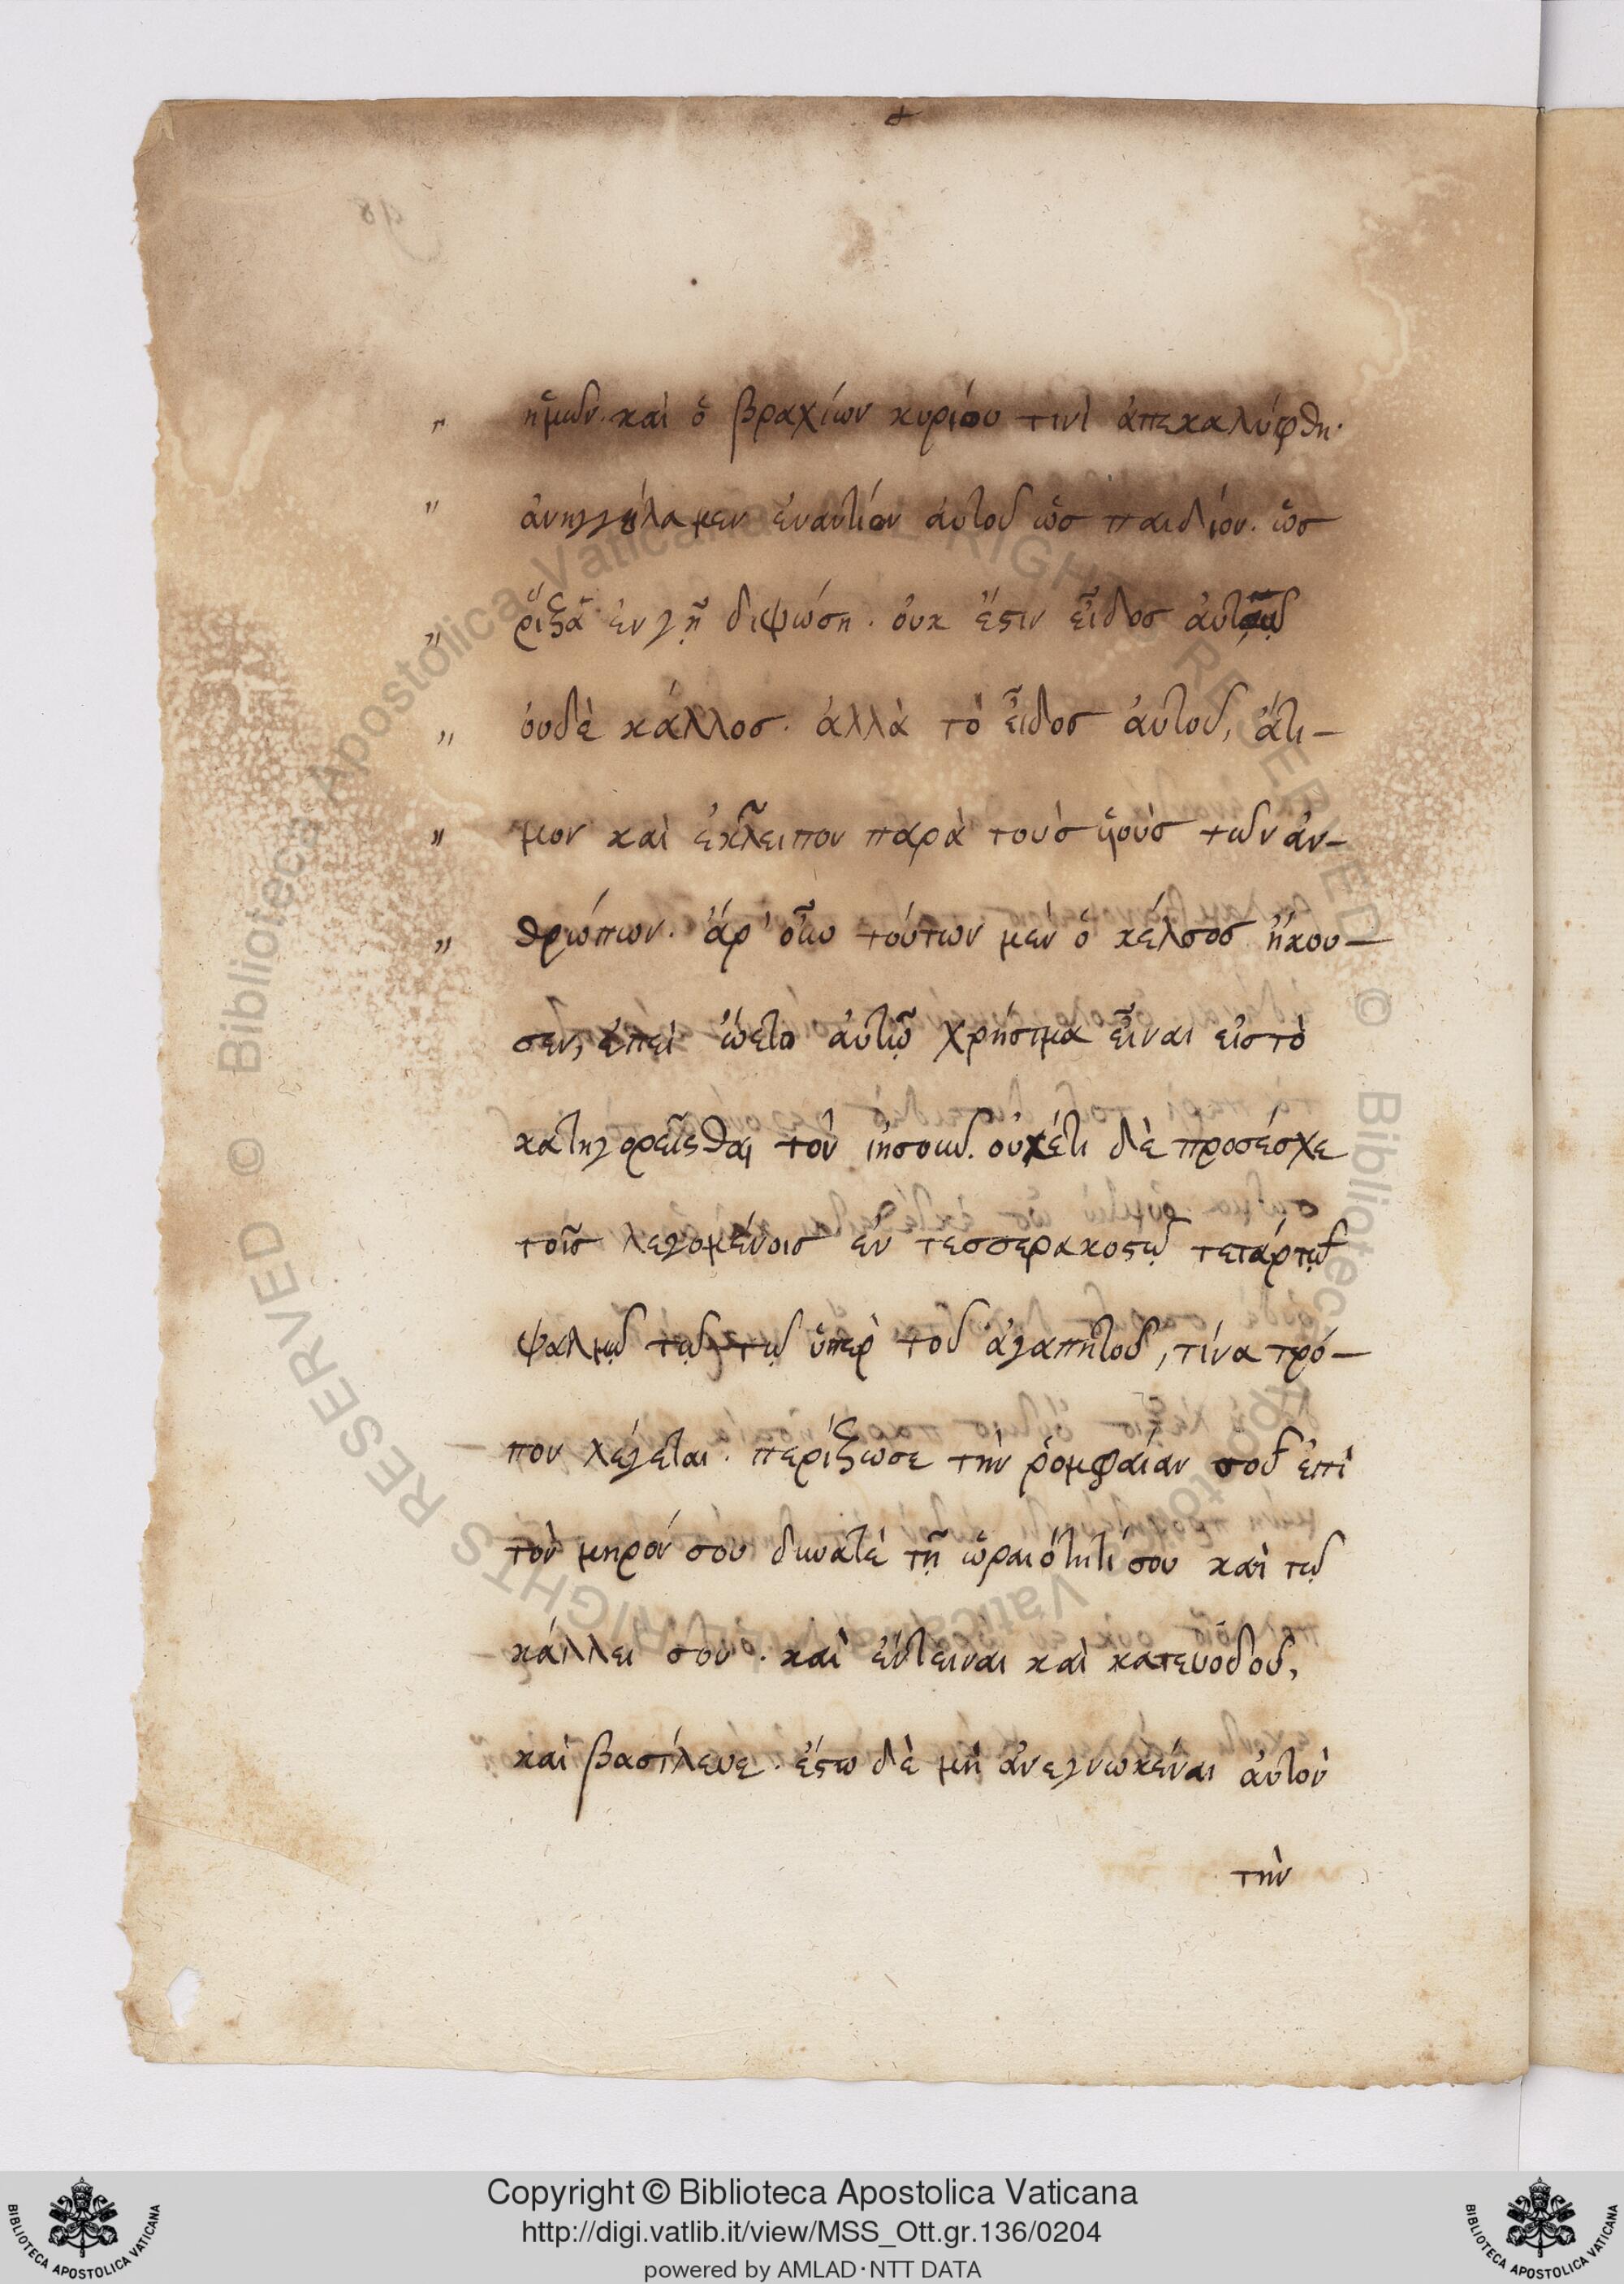 98
" ἡμῶν. καὶ ὁ βραχίων κυρίου τινὶ ἀπεκαλύφθη.
" ἀνηγγείλαμεν ἐναντίον ἀυτοῦ ὡσ παιδίον. ὡσ
" ῥίζα ἐν γῇ διψώση. ὀυκ ἔστιν εἶδοσ ἀυτῷ
" ὀυδὲ κάλλοσ. ἀλλὰ τὸ εἶδοσ ἀυτοῦ, ἄτι-
" μον καὶ ἐκλεῖπον παρὰ τοὺσ ὑιοὺσ τῶν ἀν-
" θρώπων. ἆρ' οὖν τούτων μὲν ὁ κέλσοσ ἤκου-
σεν, ἐπεὶ ὤετο ἀυτῷ χρήσιμα εἶναι εἰσ τὸ
κατηγορεῖσθαι τὸν ἰησοῦν. οὐκέτι δὲ προσέσχε
τοῖσ λεγομένοισ ἐν τεσσερακοστῷ τετάρτῳ
ψαλμῷ τῷ τῷ ὑπὲρ τοῦ ἀγαπητοῦ, τίνα τρό-
πον λέγεται. περίζωσε τὴν ῥομφαίαν σοῦ ἐπὶ
τὸν μηρόν σου δυνατὲ τῇ ὡραιότητί σου καὶ τῷ
κάλλει σου. καὶ ἔντειναι καὶ κατευόδου,
καὶ βασίλευε. ἔστω δὲ μὴ ἀνεγνωκέναι ἀυτὸν
τὴν
Copyright © Biblioteca Apostolica Vaticana
http://digi.vatlib.it/view/MSS_Ott.gr.136/0204
powered by AMLAD·NTT DATA
BIBLIOTECA APOSTOLICA VATICANA
BIBLIOTECA APOSTOLICA VATICANA